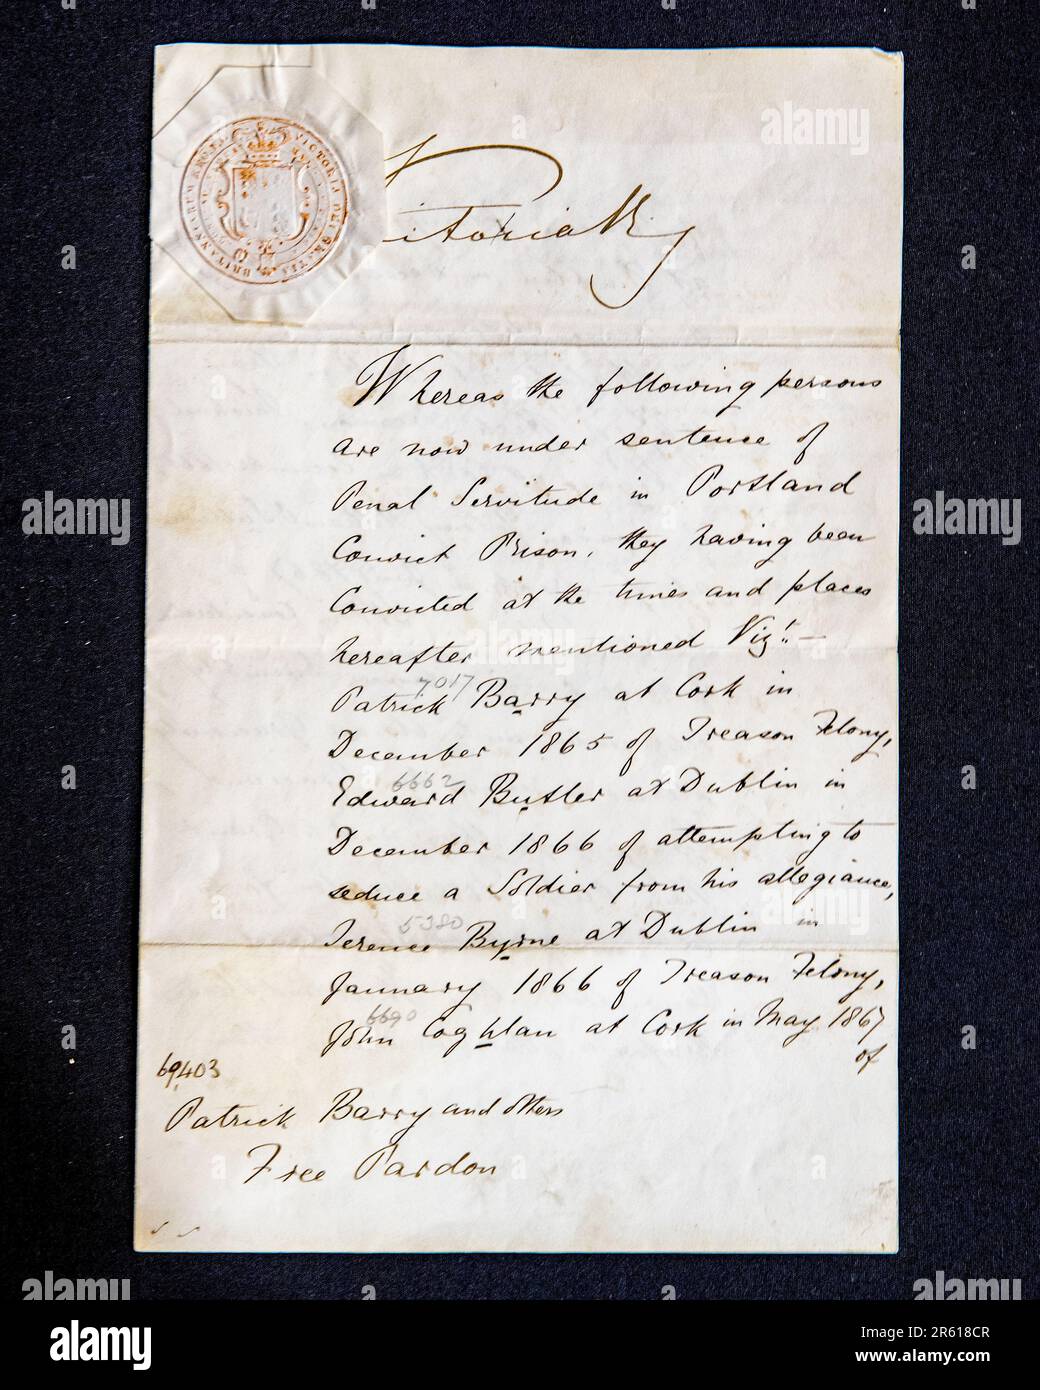 VICTORIA DEI GRATIA BRITANNIARUM
Victoria R.
Whereas the following persons
are now under sentence of
Penal Servitude in Portland
Convict Prison, they having been
Convicted at the times and places
hereafter mentioned Vizt.—
7017
Patrick Barry at Cork in
December 1865 of Treason Felony,
6662
Edward Butler at Dublin in
December 1866 of attempting to
seduce a Soldier from his allegiance,
5380
Terence Byrne at Dublin in
January 1866 of Treason Felony,
6690
John Coghlan at Cork in May 1867
of
69,403
Patrick Barry and others
Free Pardon
alamy
alamy
Image ID: 2R618CR
www.alamy.com